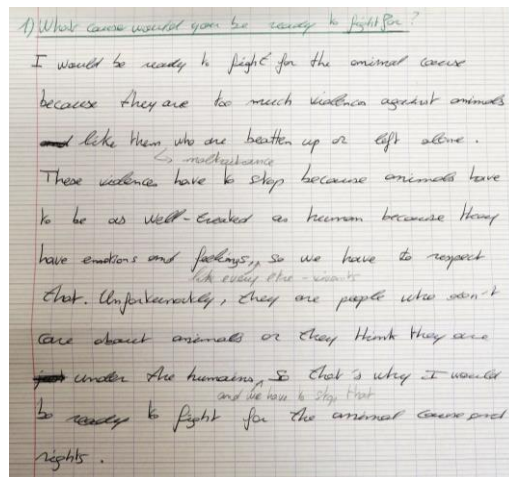 1) What cause would you be ready to fight for ?
I would be ready to fight for the animal cause
because they are too much violence against animals
like them who are beatten up or left alone.
↳ maltraitance
These violences have to stop because animals have
to be as well-treated as human because they
have emotions and feelings, so we have to respect
like every être-vivants
that. Unfortunately, they are people who don't
care about animals or they think they are
under the humains, so that's why I would
and we have to stop that
be ready to fight for the animal cause and
rights.